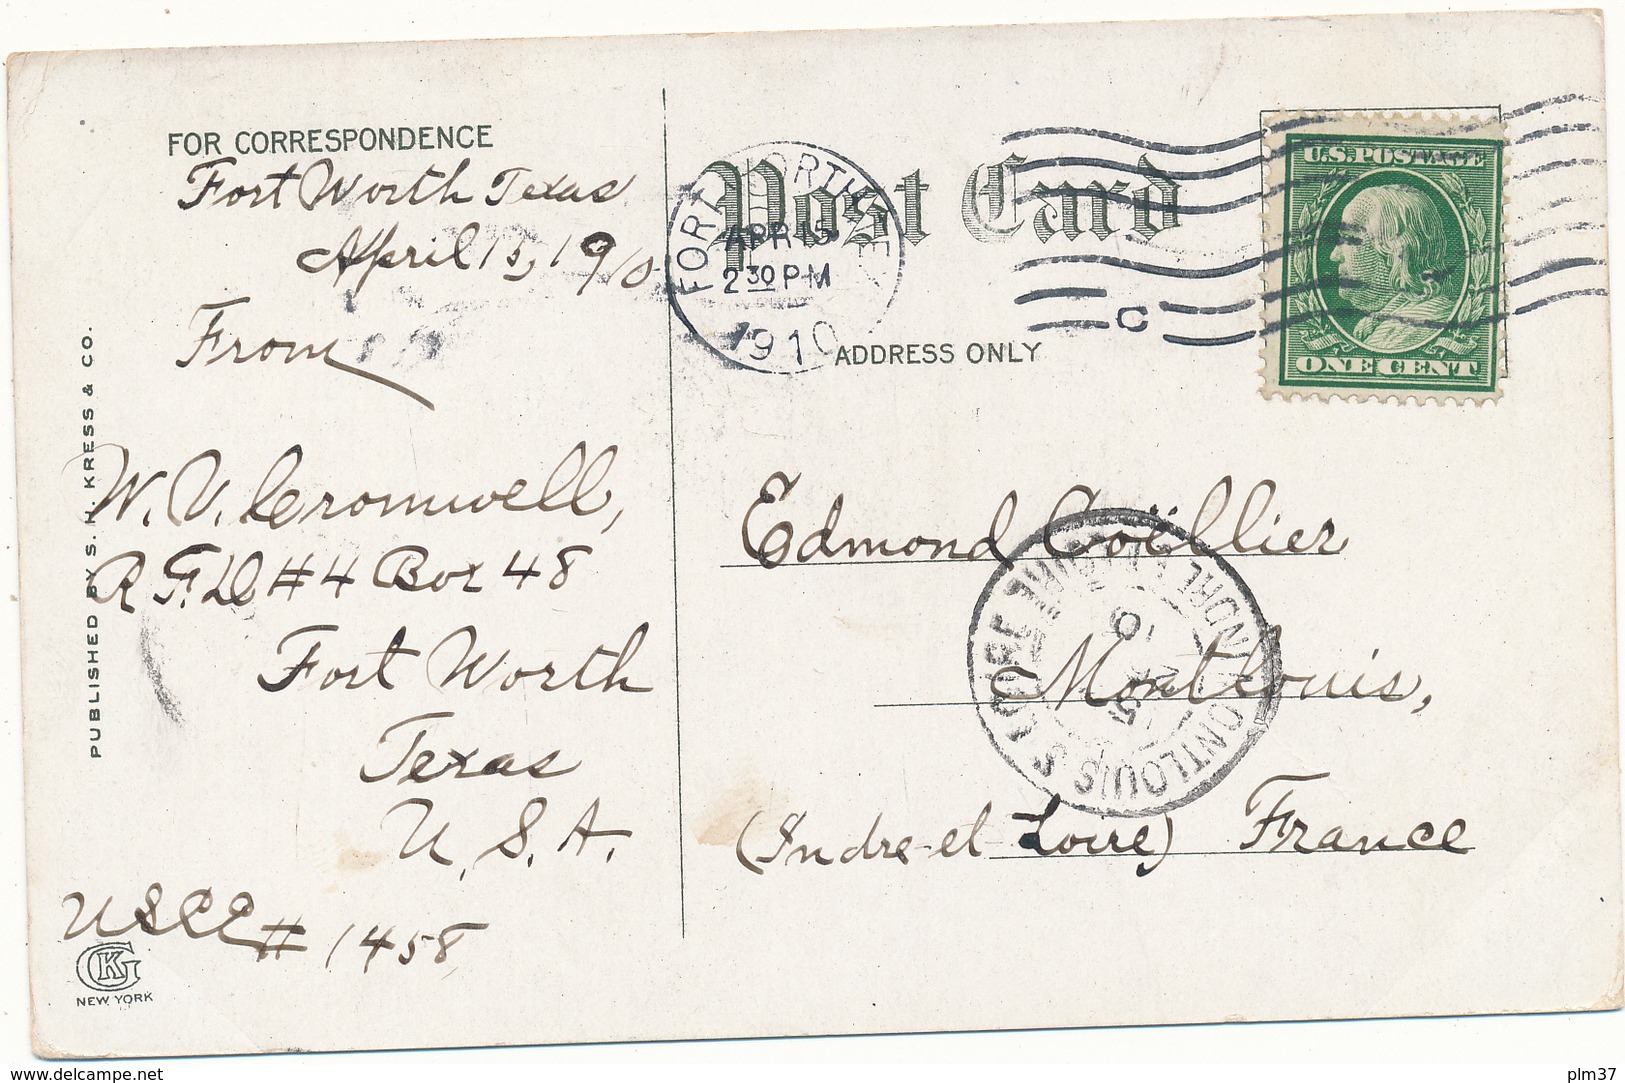 FOR CORRESPONDENCE
Fort Worth Texas
April 15, 1910
From
W. V. Cromwell,
R.F.D #4 Box 48
Fort Worth
Texas
U.S.A.
USCCE # 1458
PUBLISHED BY S. H. KRESS & CO.
GK
NEW YORK
Post Card
ADDRESS ONLY
FORT WORTH
APR 15
2 30 PM
1910
C
U.S. POSTAGE
ONE CENT
Edmond Coëllier
Montlouis,
(Indre-et Loire) France
MONTLOUIS S LOIRE
INDRE-ET-LOIRE
10
5
www.delcampe.net
plm37